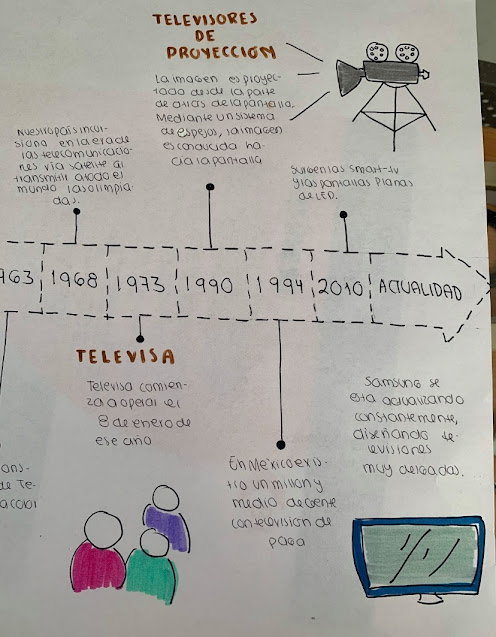 TELEVISORES
DE
PROYECCIÓN
La imagen es proyec-
tada desde la parte
de atras de la pantalla.
Mediante un sistema
de espejos, la imagen
es conducida ha-
cia la pantalla
Nuestro pais incur-
siona en la era de
las telecomunicacio-
nes via satelite al
transmitir a todo el
mundo las olimpia-
das.
Surgen las smart-tv
y las pantallas planas
de LED.
963
1968
1973
1990
1994
2010
ACTUALIDAD
TELEVISA
Televisa comien-
za a operar el
8 de enero de
ese año
En México exis-
tio un millon y
medio de gente
con television de
paga
Samsung se
esta actualizando
constantemente,
diseñando te-
levisiones
muy delgadas.
ons-
de Te-
a color